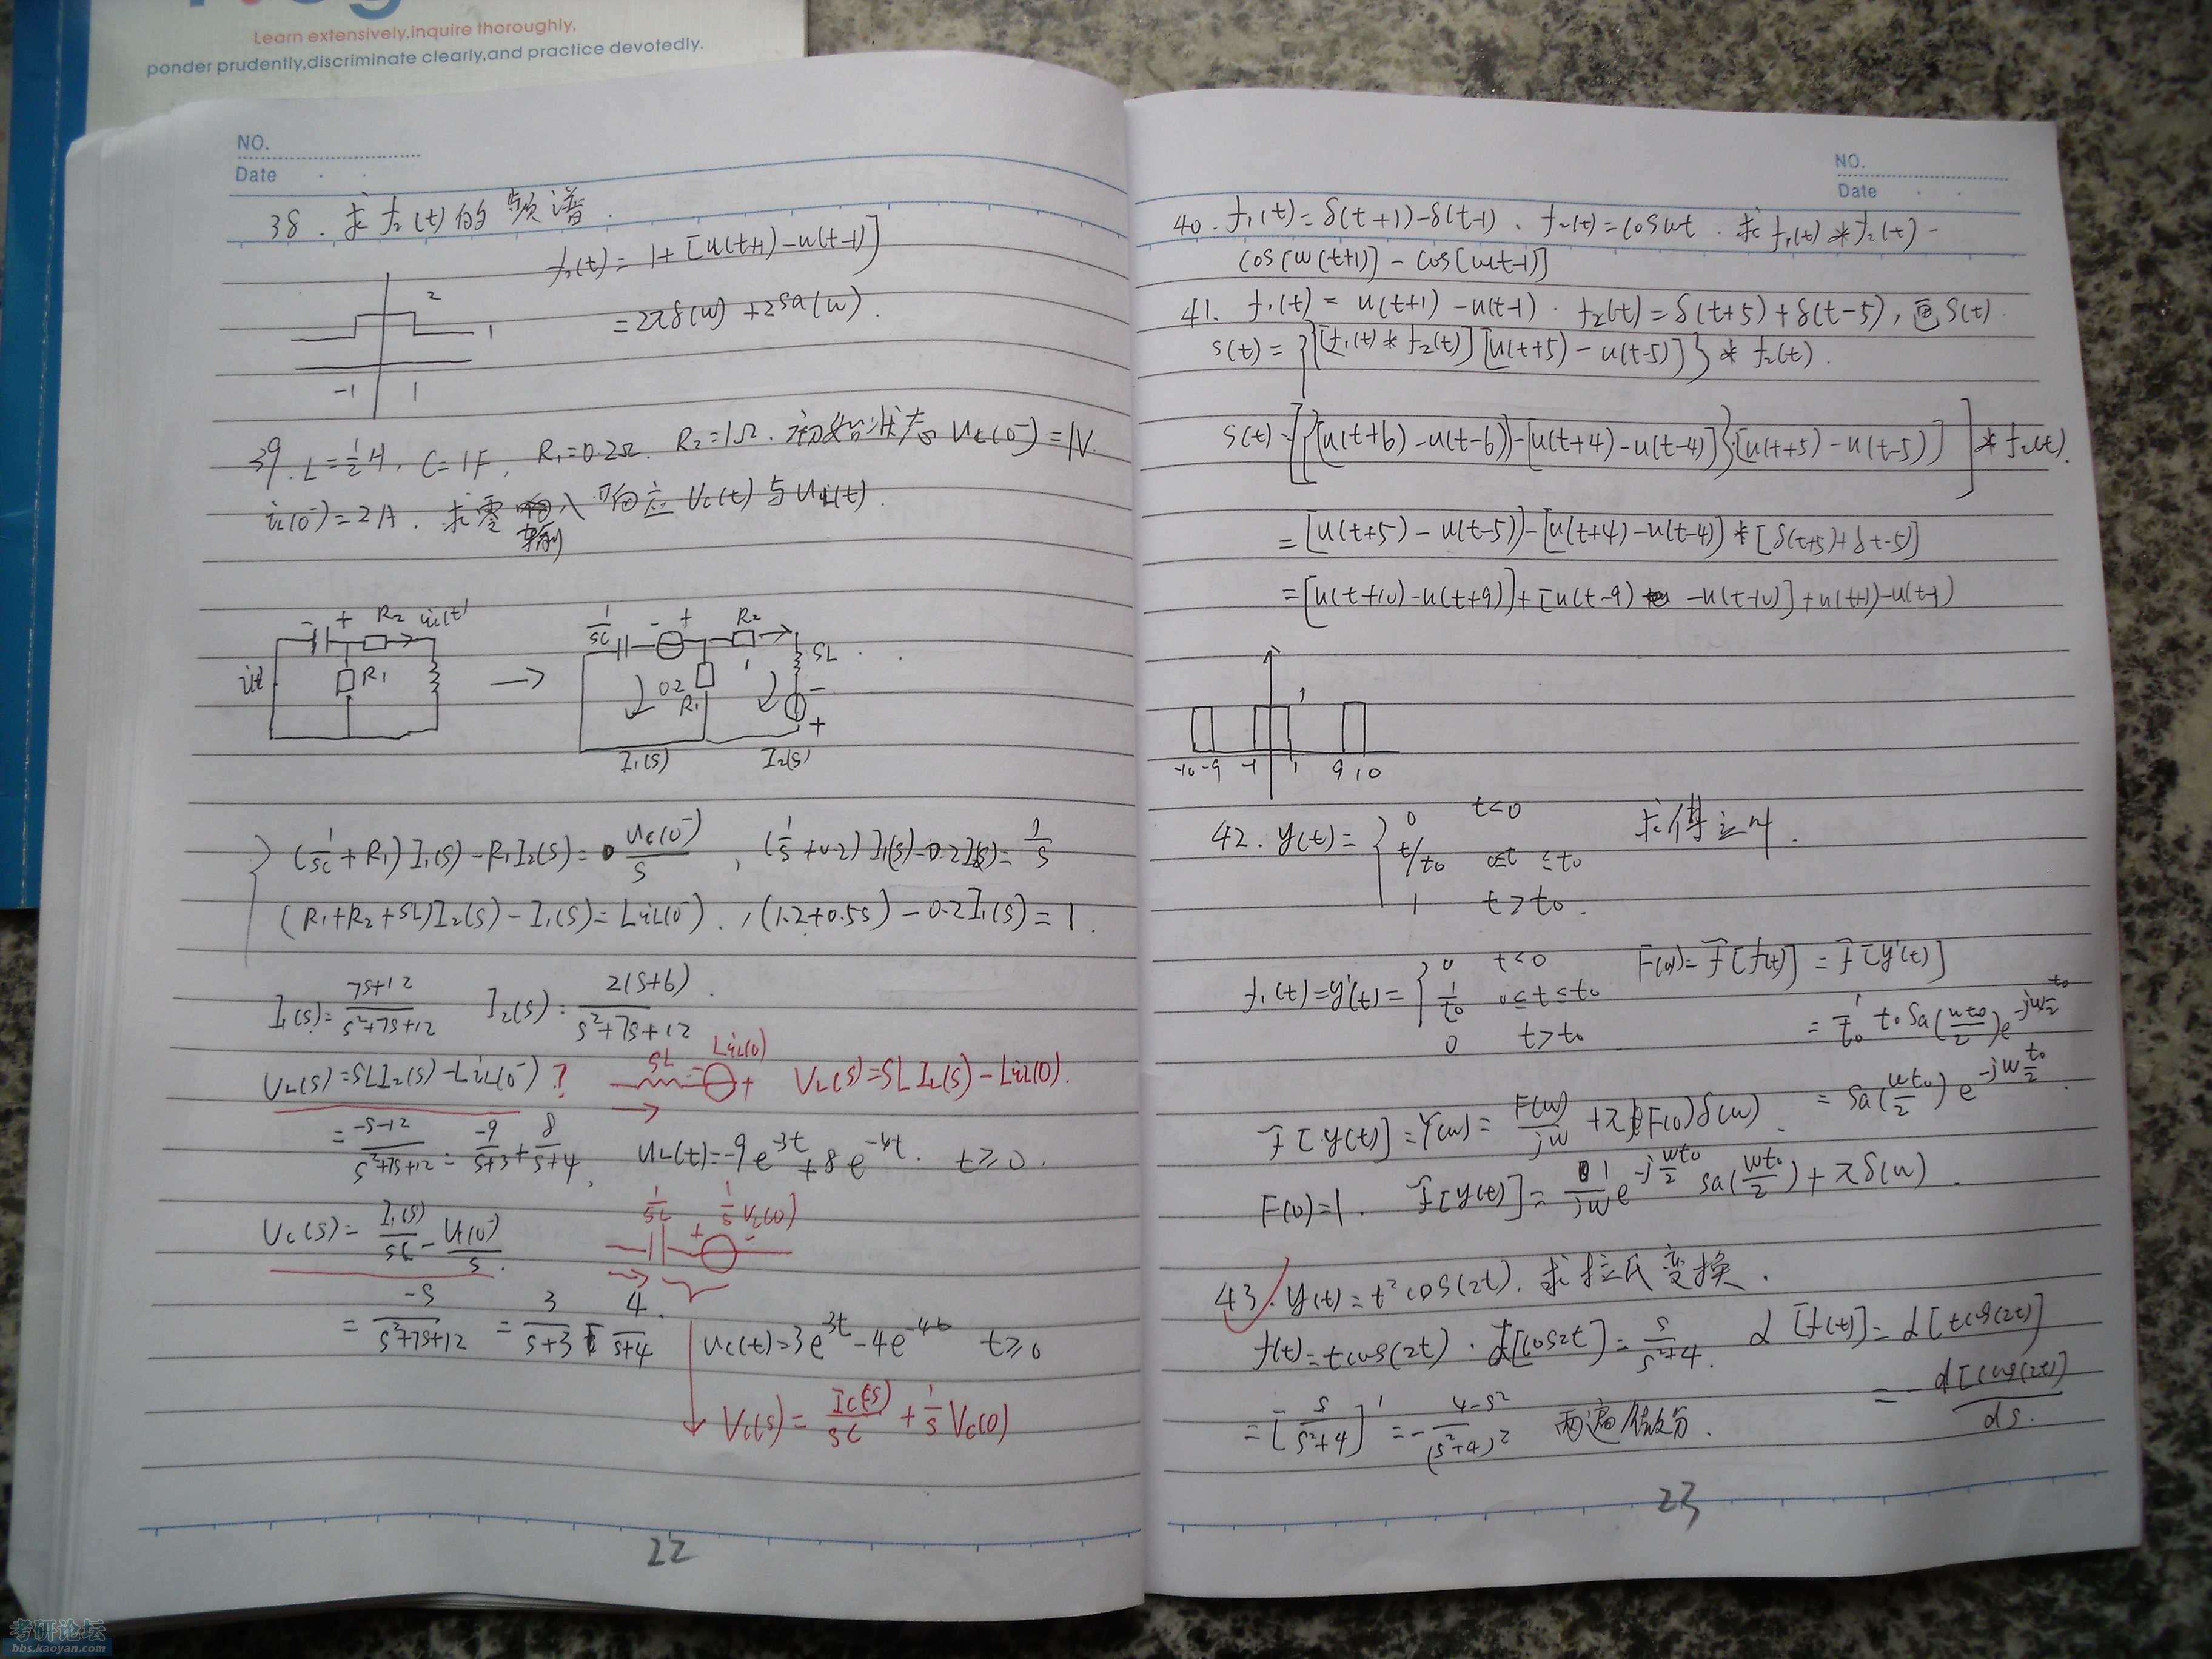 Learn extensively,inquire thoroughly,
ponder prudently,discriminate clearly,and practice devotedly.
NO.
Date
38. 求 f₂(t) 的频谱.
f₂(t) = 1+[u(t+1)-u(t-1)]
= 2πδ(w) + 2Sa(w).
2
1
-1 1
39. L=½H, C=1F, R₁=0.2Ω. R₂=1Ω. 初始状态 Uc(0⁻)=1V.
iL(0⁻)=2A. 求零输入响应 Uc(t) 与 UL(t).
- + R₂ iL(t)
R₁
1/sC - + R₂
SL
0.2 1
R₁
-
+
I₁(s) I₂(s)
(1/sC + R₁) I₁(s) - R₁I₂(s) = Uc(0⁻)/s , (1/s + 0.2) I₁(s) - 0.2I₂(s) = 1/s
(R₁+R₂+SL)I₂(s) - I₁(s) = LiL(0⁻). , (1.2+0.5s) - 0.2I₁(s) = 1.
I₁(s) = (7s+12)/(s²+7s+12) I₂(s) = 2(s+6)/(s²+7s+12).
UL(s) = SLI₂(s) - LiL(0⁻) ? SL LiL(0) - + VL(s) = SL IL(s) - LiL(0).
= (-s-12)/(s²+7s+12) = -9/(s+3) + 8/(s+4), UL(t) = -9e^-3t + 8e^-4t. t≥0.
Uc(s) = I₁(s)/sC - Uc(0⁻)/s. 1/sC 1/s Vc(0) + -
= -s/(s²+7s+12) = 3/(s+3) - 4/(s+4) Uc(t) = 3e^3t - 4e^-4t t≥0
Vc(s) = Ic(s)/sC + 1/s Vc(0)
22
NO.
Date
40. f₁(t) = δ(t+1)-δ(t-1). f₂(t) = cos wt. 求 f₁(t) * f₂(t) -
cos[w(t+1)] - cos[w(t-1)]
41. f₁(t) = u(t+1) - u(t-1). f₂(t) = δ(t+5) + δ(t-5), 画 S(t).
S(t) = {[f₁(t) * f₂(t)] [u(t+5) - u(t-5)]} * f₂(t).
S(t) = [{[u(t+6) - u(t-6)] - [u(t+4) - u(t-4)]}·[u(t+5) - u(t-5)]] * f₂(t).
= [u(t+5) - u(t-5)] - [u(t+4) - u(t-4)] * [δ(t+5) + δ(t-5)]
= [u(t+10) - u(t+9)] + [u(t-9) - u(t-10)] + u(t+1) - u(t-1)
1
-10 -9 -1 1 9 10
42. y(t) = { 0 t<0 求傅立叶.
t/t₀ 0≤t≤t₀
1 t>t₀.
f₁(t) = y'(t) = { 0 t<0 F(w) = F[f(t)] = F[y'(t)]
1/t₀ 0≤t≤t₀ = 1/t₀ t₀ Sa(wt₀/2) e^-jw t₀/2
0 t>t₀
= Sa(wt₀/2) e^-jw t₀/2.
F[y(t)] = Y(w) = F(w)/jw + πF(0)δ(w).
F(0) = 1. F[y(t)] = 1/jw e^-j wt₀/2 Sa(wt₀/2) + πδ(w).
43. y(t) = t² cos(2t). 求拉氏变换.
f(t) = t cos(2t). L[cos2t] = s/(s²+4). L[f(t)] = L[t cos(2t)]
= - d[cos(2t)]/ds.
= [s/(s²+4)]' = - (4-s²)/(s²+4)² 两遍微分.
23
考研论坛
bbs.kaoyan.com